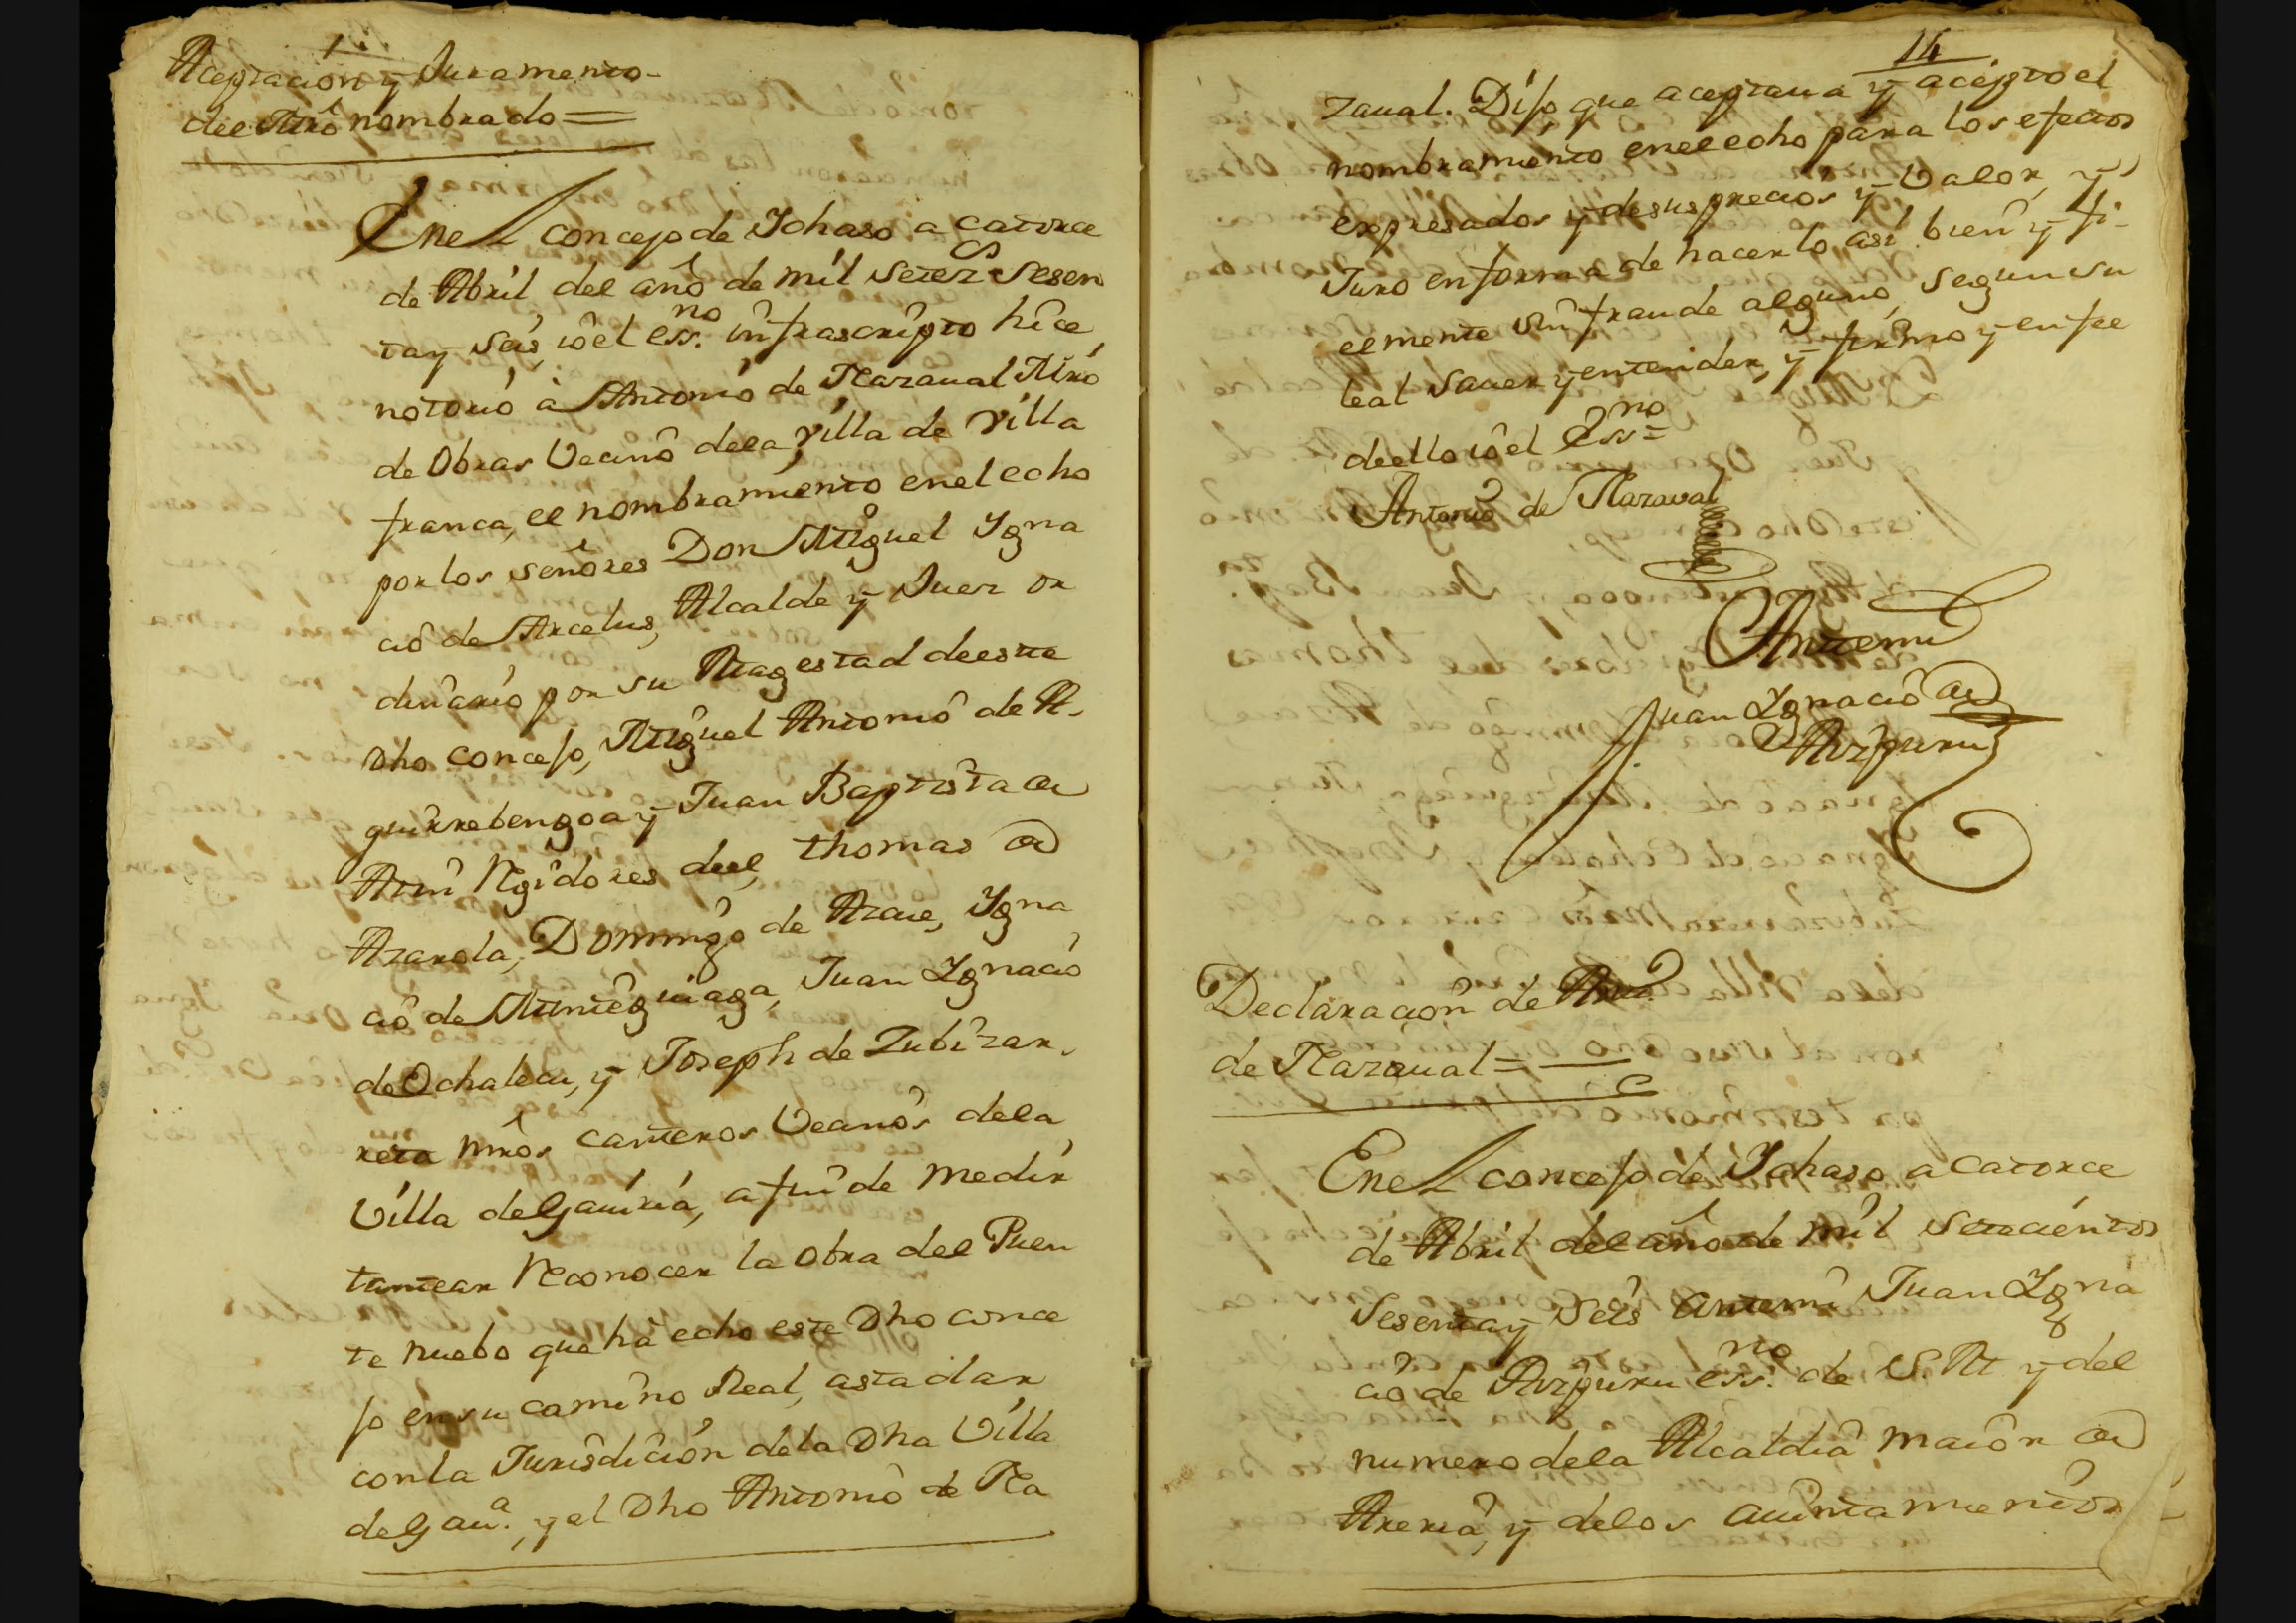 Aceptacion y Juramento
del Mr̃o nombrado =
Enel concejo de Ychaso a catorce
de Abril del año de mil setezs sesen
ta y seis, io el essno infrascripto hice
notorio à Antonio de Mazaual Mrõ
de Obras Vecino dela Villa de Villa
franca, el nombramiento enel echo
por los señores Don Miguel Ygna
cio de Arcelus, Alcalde y Juez or
dinario por su Magestad deeste
Dho concejo, Miguel Antonio de A-
guirrebengoa y Juan Baptista de
Arin Regidores deel, thomas de
Azarola, Domingo de Azcue, Ygna
cio de Munteguiaga, Juan Ygnacio
de Ochalecu, y Joseph de Zubizar-
reta mrõs canteros Vecinos dela
Villa de Gauiria, a fin de medir
tantear Reconocer la obra del Puen
te nuebo que hà echo este Dho conce
jo en su camino Real, asta dar
con la Jurisdicion dela Dha Villa
de Gaua., y el Dho Antonio de Ma
14
zaual. Dijo que aceptaua y acepto el
nombramiento enel echo para los efectos
expresados y desus precios y Valor, y
Juro en forma de hacerlo asi bien y fi-
elmente sin fraude alguno, segun su
leal sauer y entender, y firmo y en fee
deello io el Essno =
Antonio de Mazaval
Antemi
Juan Ygnacio de
Aizpuru
Declaracion de Anto.
de Mazaual =
Enel concejo de Ychaso a catorce
de Abril del año de mil setecientos
Sesenta y Seis antemi Juan Ygna
cio de Aizpuru essno. de S. M. y del
numero dela Alcaldia maior de
Areria, y delos aiuntamientos